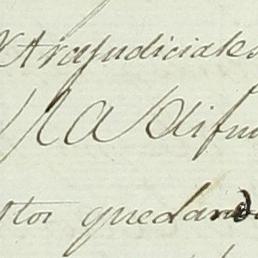 xtrajudiciales
la difun
tor quedando